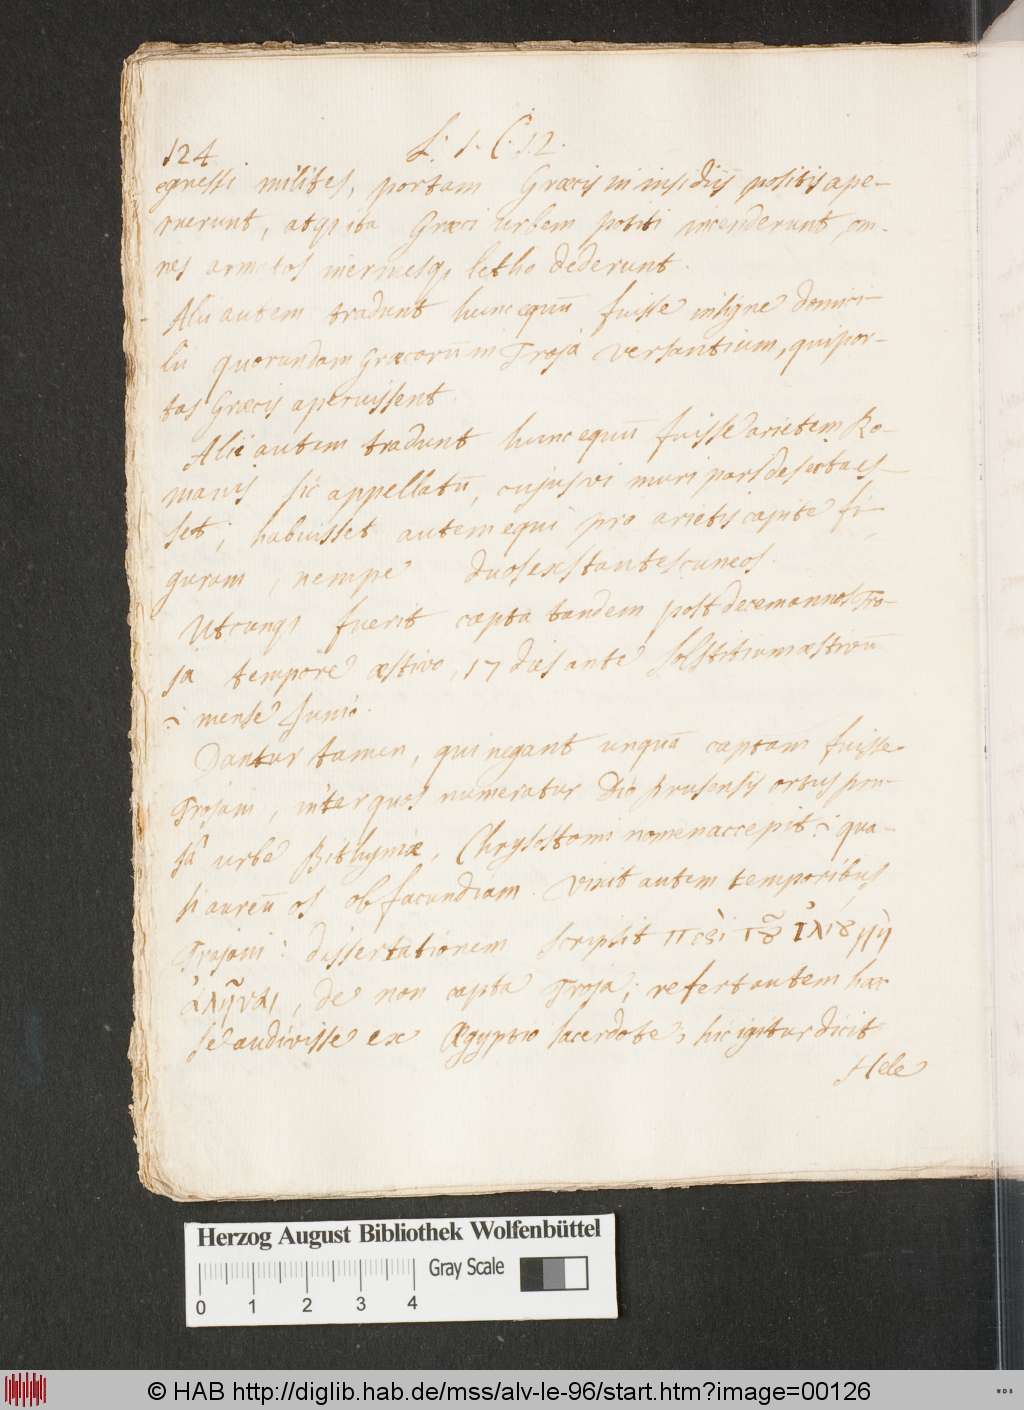 124 L. 1. C. 12.
egressi milites, portam Græcis in insidiis positis ape-
ruerunt, atqȝ ita Græci urbem potiti incenderunt, om-
nes armatos inermesqȝ letho dederunt.
Alii autem tradunt hunc equū fuisse insigne domici-
lii quorundam Græcorum in Troja versantium, qui por-
tas Græcis aperuissent.
Alii autem tradunt hunc equū fuisse arietem Ro-
manis sic appellatū, cujus vi muri pars desecta es-
set; habuisset autem equi pro arietis capite fi-
guram, nempe duos exstantes cuneos.
Utcunqȝ fuerit capta tandem post decem annos Tro-
ja tempore æstivo, 17 dies ante solstitium æstivū
i mense Junio.
Dantur tamen, qui negant unquā captam fuisse
Trojam, inter quos numeratur Dio Prusensis ortus
urbe Bithyniæ, Chrysostomi nomen accepit i qua-
si aureū os ob facundiam. vixit autem temporibus
Trajani: dissertationem scripsit περὶ τοῦ ἰλίου μὴ
ἁλῆναι, de non capta Troja; refert autem hæc
se audivisse ex Ægyptio sacerdote; hic igitur dicit
Hele
Herzog August Bibliothek Wolfenbüttel
Gray Scale
0 1 2 3 4
© HAB http://diglib.hab.de/mss/alv-le-96/start.htm?image=00126